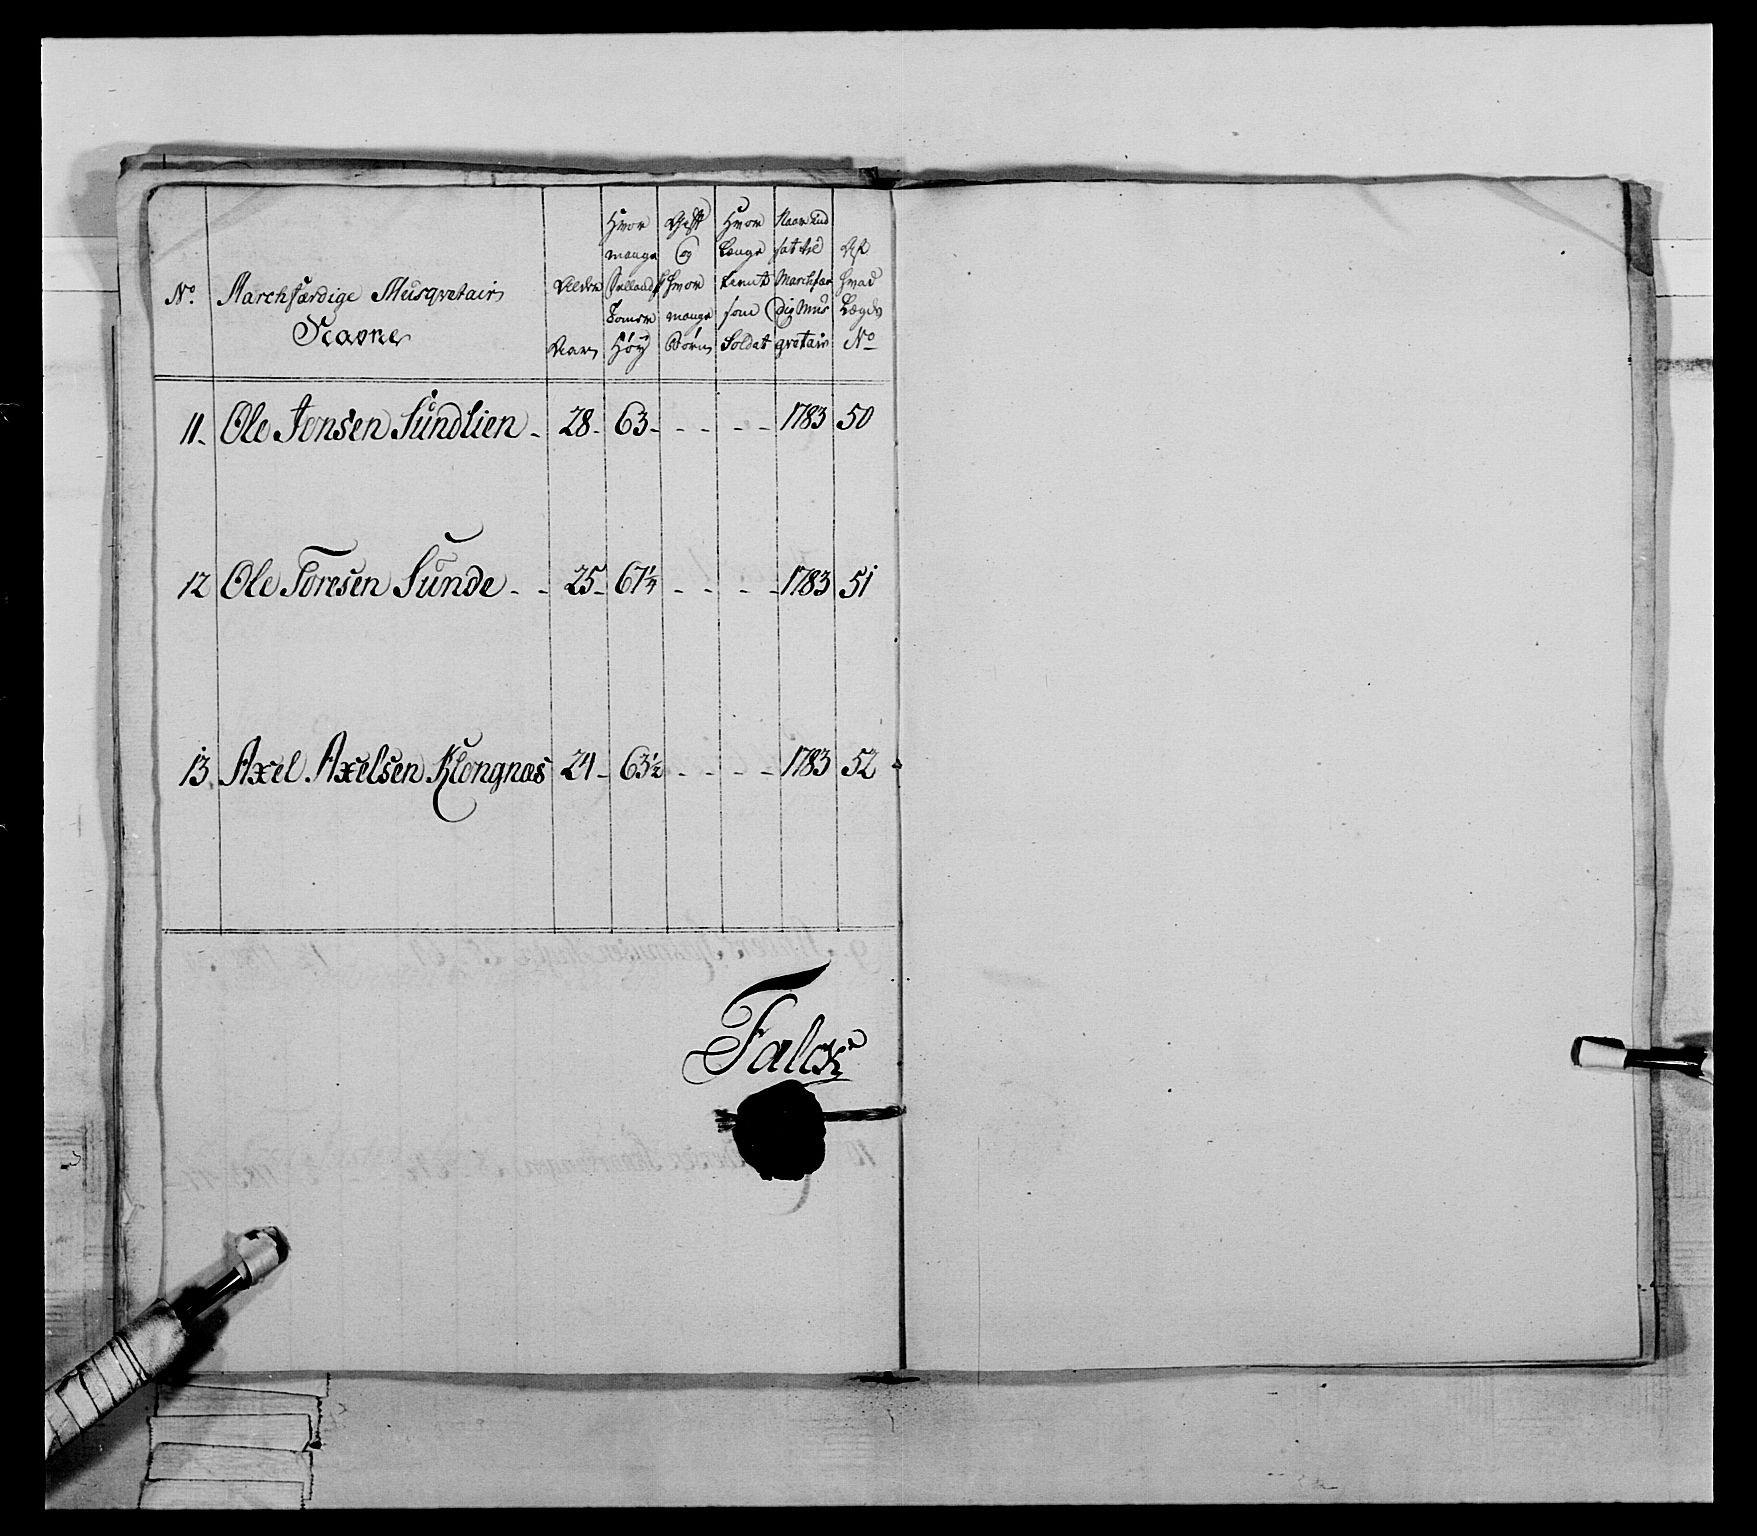 No. Marchfærdige Musqvetair Navne
Alder Aar
Hvor mange Sellands Tomer Høy
Gift og Hvor mange Børn
Hvor Længe tient som Soldat
Naar Ind sat til Marchfær dig Mus qvetair
Af hvad Lægds No
11. Ole Jonsen Sundlien - 28 - 63 - - - - - 1783 50
12 Ole Toresen Sunde - - 25 - 67 1/4 - - - - 1783 51
13. Axel Axelsen Klongnæs 24 - 63 1/2 - - - - 1783 52
Falck